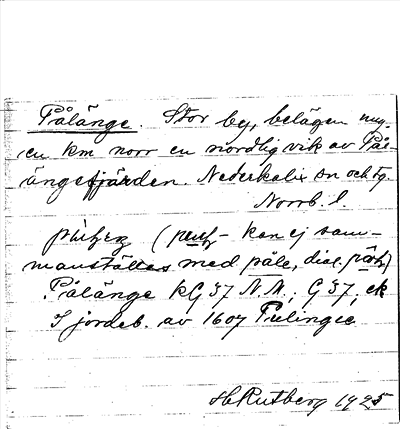 Pålänge. Stor by, belägen ung.
en km norr en nordlig vik av Pål-
ängefjärden. Nederkalix sn och tg.
Norrb. l.
(
- kan ej sam-
manställes med påle, dial.
Pålänge KG 37 N.M.; G 37, ek
I jordeb. av 1607 Pulinge
HRutberg 1925